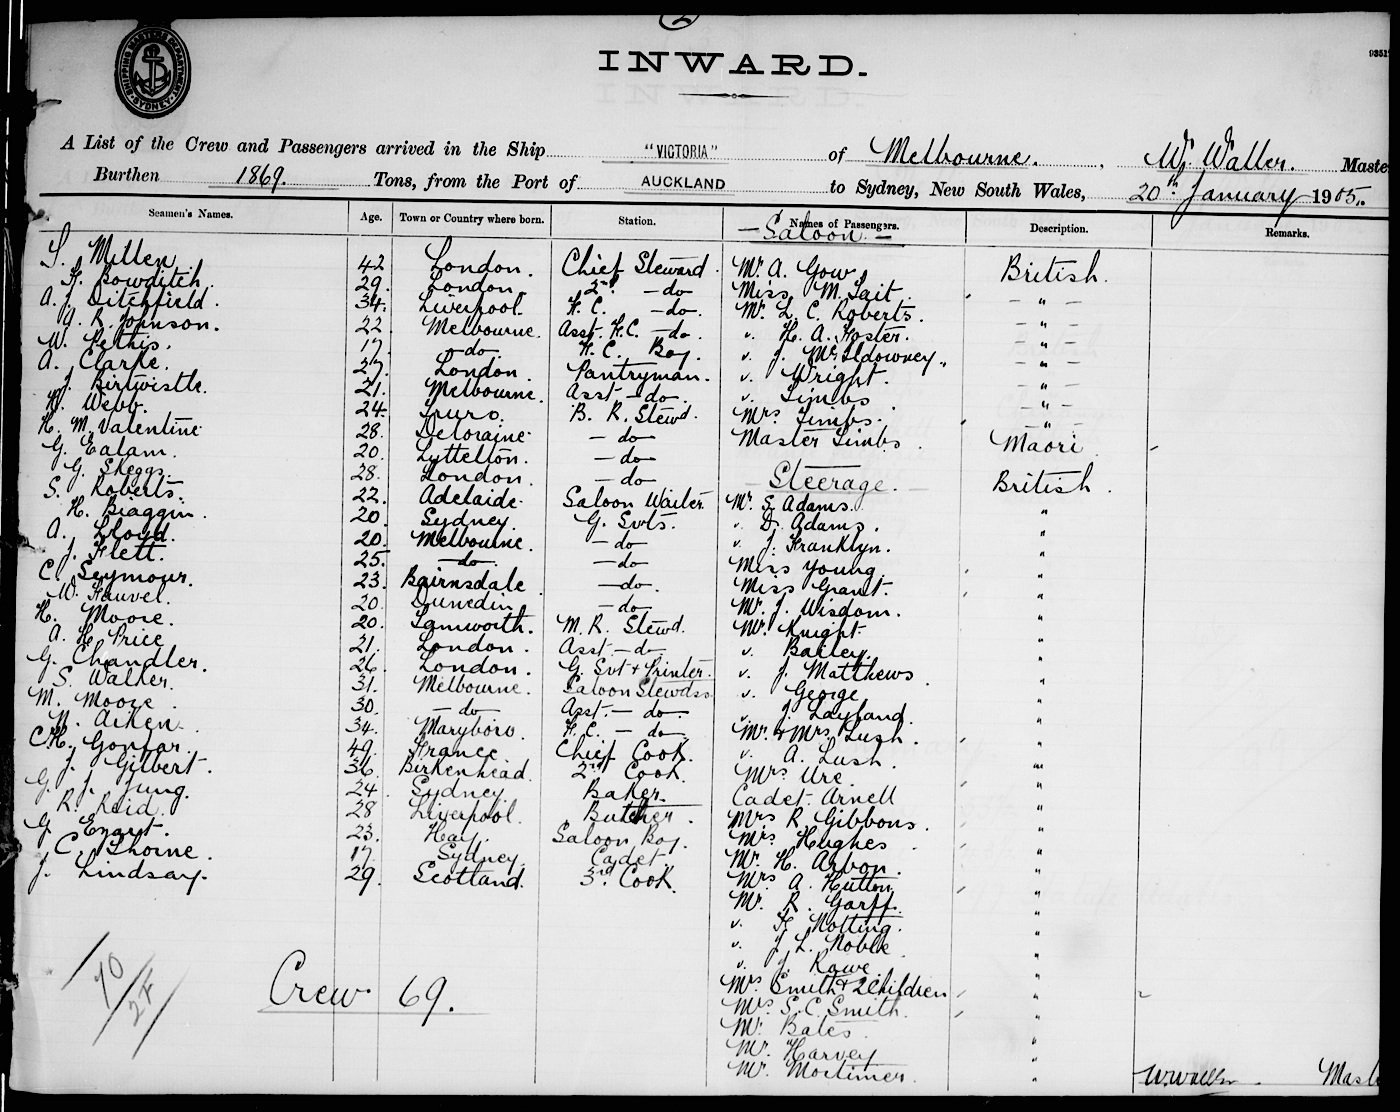 2
SHIPPING MASTER'S DEPARTMENT SYDNEY
INWARD.
A List of the Crew and Passengers arrived in the Ship "VICTORIA" of Melbourne. W. Waller. Master
Burthen 1869. Tons, from the Port of AUCKLAND to Sydney, New South Wales, 20th January 1905.
Seamen's Names. Age. Town or Country where born. Station. Names of Passengers. Description. Remarks.
- Saloon -
S. Millen 42 London. Chief Steward. Mr. A. Gow British.
F. Bowditch. 29. London. 2nd - do Miss M. Tait. - " -
A. J. Ditchfield. 34. Liverpool. F. C. - do. Mr. L. C. Roberts. - " -
G. R. Johnson. 22. Melbourne. Asst. F.C. - do. " H. A. Foster. - " -
W. Pethis. 17 - do - F. C. Boy. " J. McIldowney. - " -
A. Clarke. 27. London Pantryman. " Wright. - " -
J. Birtwistle. 21. Melbourne. Asst - do. " Timbs - " -
W. Webb. 24. Truro. B. R. Stewd. Mrs Timbs. - " -
H. M. Valentine 28. Deloraine - do Master Timbs. Maori.
G. Ealam. 20. Lyttelton. - do - Steerage. - British.
G. Skeggs. 28. London. - do
S. Roberts. 22. Adelaide Saloon Waiter. Mr. S. Adams. "
H. Biaggin. 20. Sydney. G. Svts. " D. Adams. "
A. Lloyd. 20. Melbourne. - do " J. Franklyn. "
J. Flett. 25. - do. - do Miss Young. "
C. Seymour. 23. Bairnsdale - do. Miss Grant. "
W. Fauvel. 20. Dunedin - do Mr. J. Wisdom. "
H. Moore. 20. Tamworth. M. R. Stewd. Mr. Knight. "
A. H. Price 21. London. Asst - do " Bailey. "
G. Chandler. 26. London. G. Svt + Printer. " J. Matthews. "
S. Walker. 31. Melbourne. Saloon Stewdss " George. "
M. Moore. 30. - do Asst. - do " J. Layland. "
N. Aiken 34. Maryboro. F. C. - do Mr. & Mrs Lush. "
C. H. Gontar. 49. France Chief Cook. " A. Lush. "
J. Gilbert. 36. Birkenhead. 2nd Cook. Mrs Ure "
G. J. Jung. 24. Sydney Baker. Cadet Arnell "
R. Reid. 28 Liverpool. Butcher. Mrs R. Gibbons. "
G. 23. Hay. Saloon Boy. Mrs Hughes "
C. Thorne. 17. Sydney. Cadet. Mr. H. Arbon. "
J. Lindsay. 29. Scotland. 3rd Cook. Mrs A. Hutton "
Mr. R. Garff. "
" F. Notting. "
" J. L. Noble "
" J. Rowe. "
Mrs Smith + 2 Children "
Mrs S. C. Smith. "
Mr. Bates "
Mr. Harvey "
Mr. Mortimer. "
70/27
Crew 69.
W. Waller. Mast